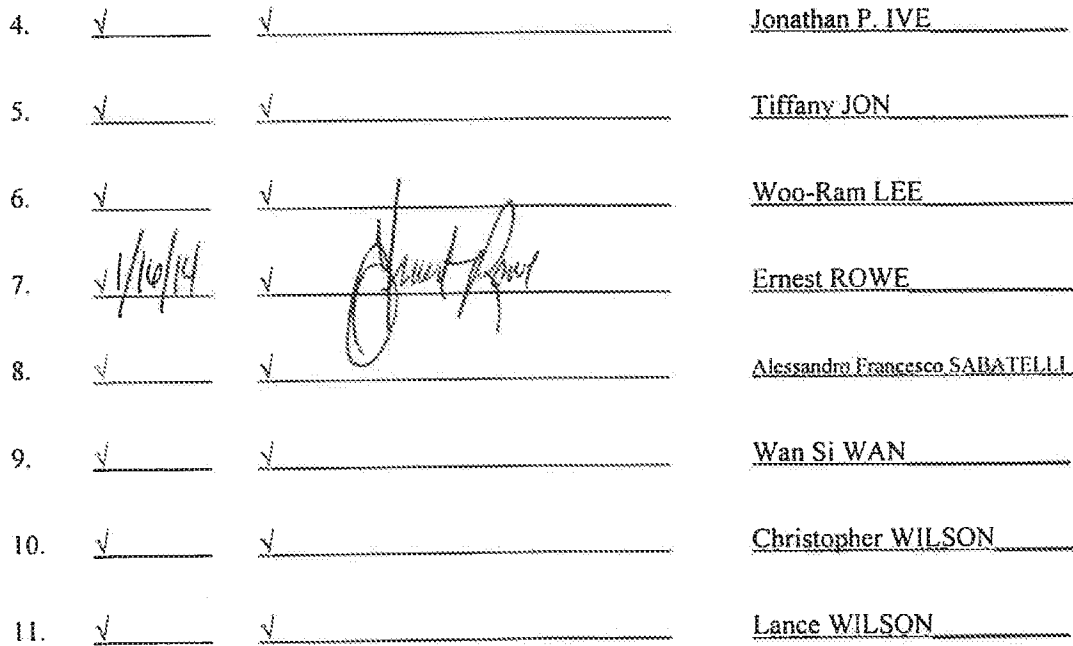 4. √ √ Jonathan P. IVE
5. √ √ Tiffany JON
6. √ √ Woo-Ram LEE
7. √ 1/16/14 √ Ernest Rowe Ernest ROWE
8. √ √ Alessandro Francesco SABATELLI
9. √ √ Wan Si WAN
10. √ √ Christopher WILSON
11. √ √ Lance WILSON